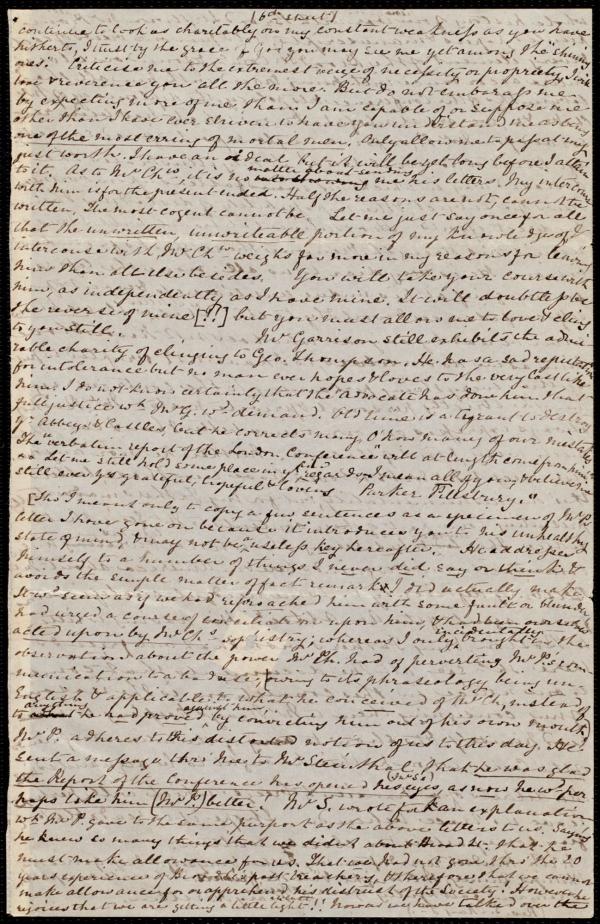 [6th sheet]
continue to look as charitably on my constant weakness as you have
hitherto, I trust by the grace of God you may see me yet among the "shining
ones." Criticise me to the extremest verge of necessity or propriety, I will
love & reverence you all the more. But do not embarrass me
by expecting more of me than I am capable of, or suppose me
other than I have ever striven to have you understand me as being
one of the most erring of mortal men. Only allow me to pass at my
just worth. I have an ideal but it will be long before I attain
to it. As to Mr Chn, it is no matter about sending me his letters. My intercourse
with him is for the present ended. Half the reasons are not, cannot be
written. The most cogent cannot be. Let me just say once for all
that the unwritten, unwriteable portion of my
intercourse with Mr Chn weighs far more in my reasons for leaving
him than all else besides. You will take your course with
him, as independently as I have mine. It will doubtless be
the reverse of mine [!?] but you must allow me to love & cling
to you still. Mr Garrison still exhibits the admi-
rable charity of clinging to Geo. Thompson. He has a sad reputation
for intolerance but no man ever hopes & loves to the very last like
him. I do not know certainly that the Advocate has done him that
full justice wh Mr G. wd demand. Old time is a tyrant to destroy
ye Abbeys & Castles but he corrects many, O how many of our mistakes
The verbatim report of the London Conference will at length come from
Let me still hold some place in yr kind regard do, I mean all of you, & believe me
still ever yr grateful, hopeful & loving Parker Pillsbury."
[Tho' I meant only to copy a few sentences as a specimen of Mr P's
letter I have gone on because it introduces you to his unhealthy
state of mind, & may not be a useless key hereafter. He addresses
himself to a number of things I never did say or think &
avoids the simple matter of fact remark I did actually make
It wd seem as if we had reproached him with some fault or blunder
had urged a course of conciliation upon him, & had been ourselves
acted upon by Mr Ch's sophistry; whereas I only incidentally brought in the
observation about the power Mr Ch. had of perverting Mr P's com-
munication to a bad use, owing to its phraseology being un-
English & applicable to what he conceived of Mr Ch, instead of
to anything he had proved against him, by convicting him out of his own mouth)
Mr P. adheres to this distorted notion of us to this day. He
sent a message thro' me to Mr Steinthal "that he was glad
the Report of the Conference has opened (Mr S's) his eyes, as now he wd per-
haps take him (Mr P.) better." Mr S. wrote for an explanation
wh Mr P. gave to the same purport as the above letters to us. Saying
he knew so many things that we didn't about Ch. That he
must make allowance for us. That we had not gone thro' the 20
years experience of treachery, & therefore that we cannot
make allowance for or apprehend his distrust of the Society. However he
rejoices that we are getting a little light!! Now as we have talked over the